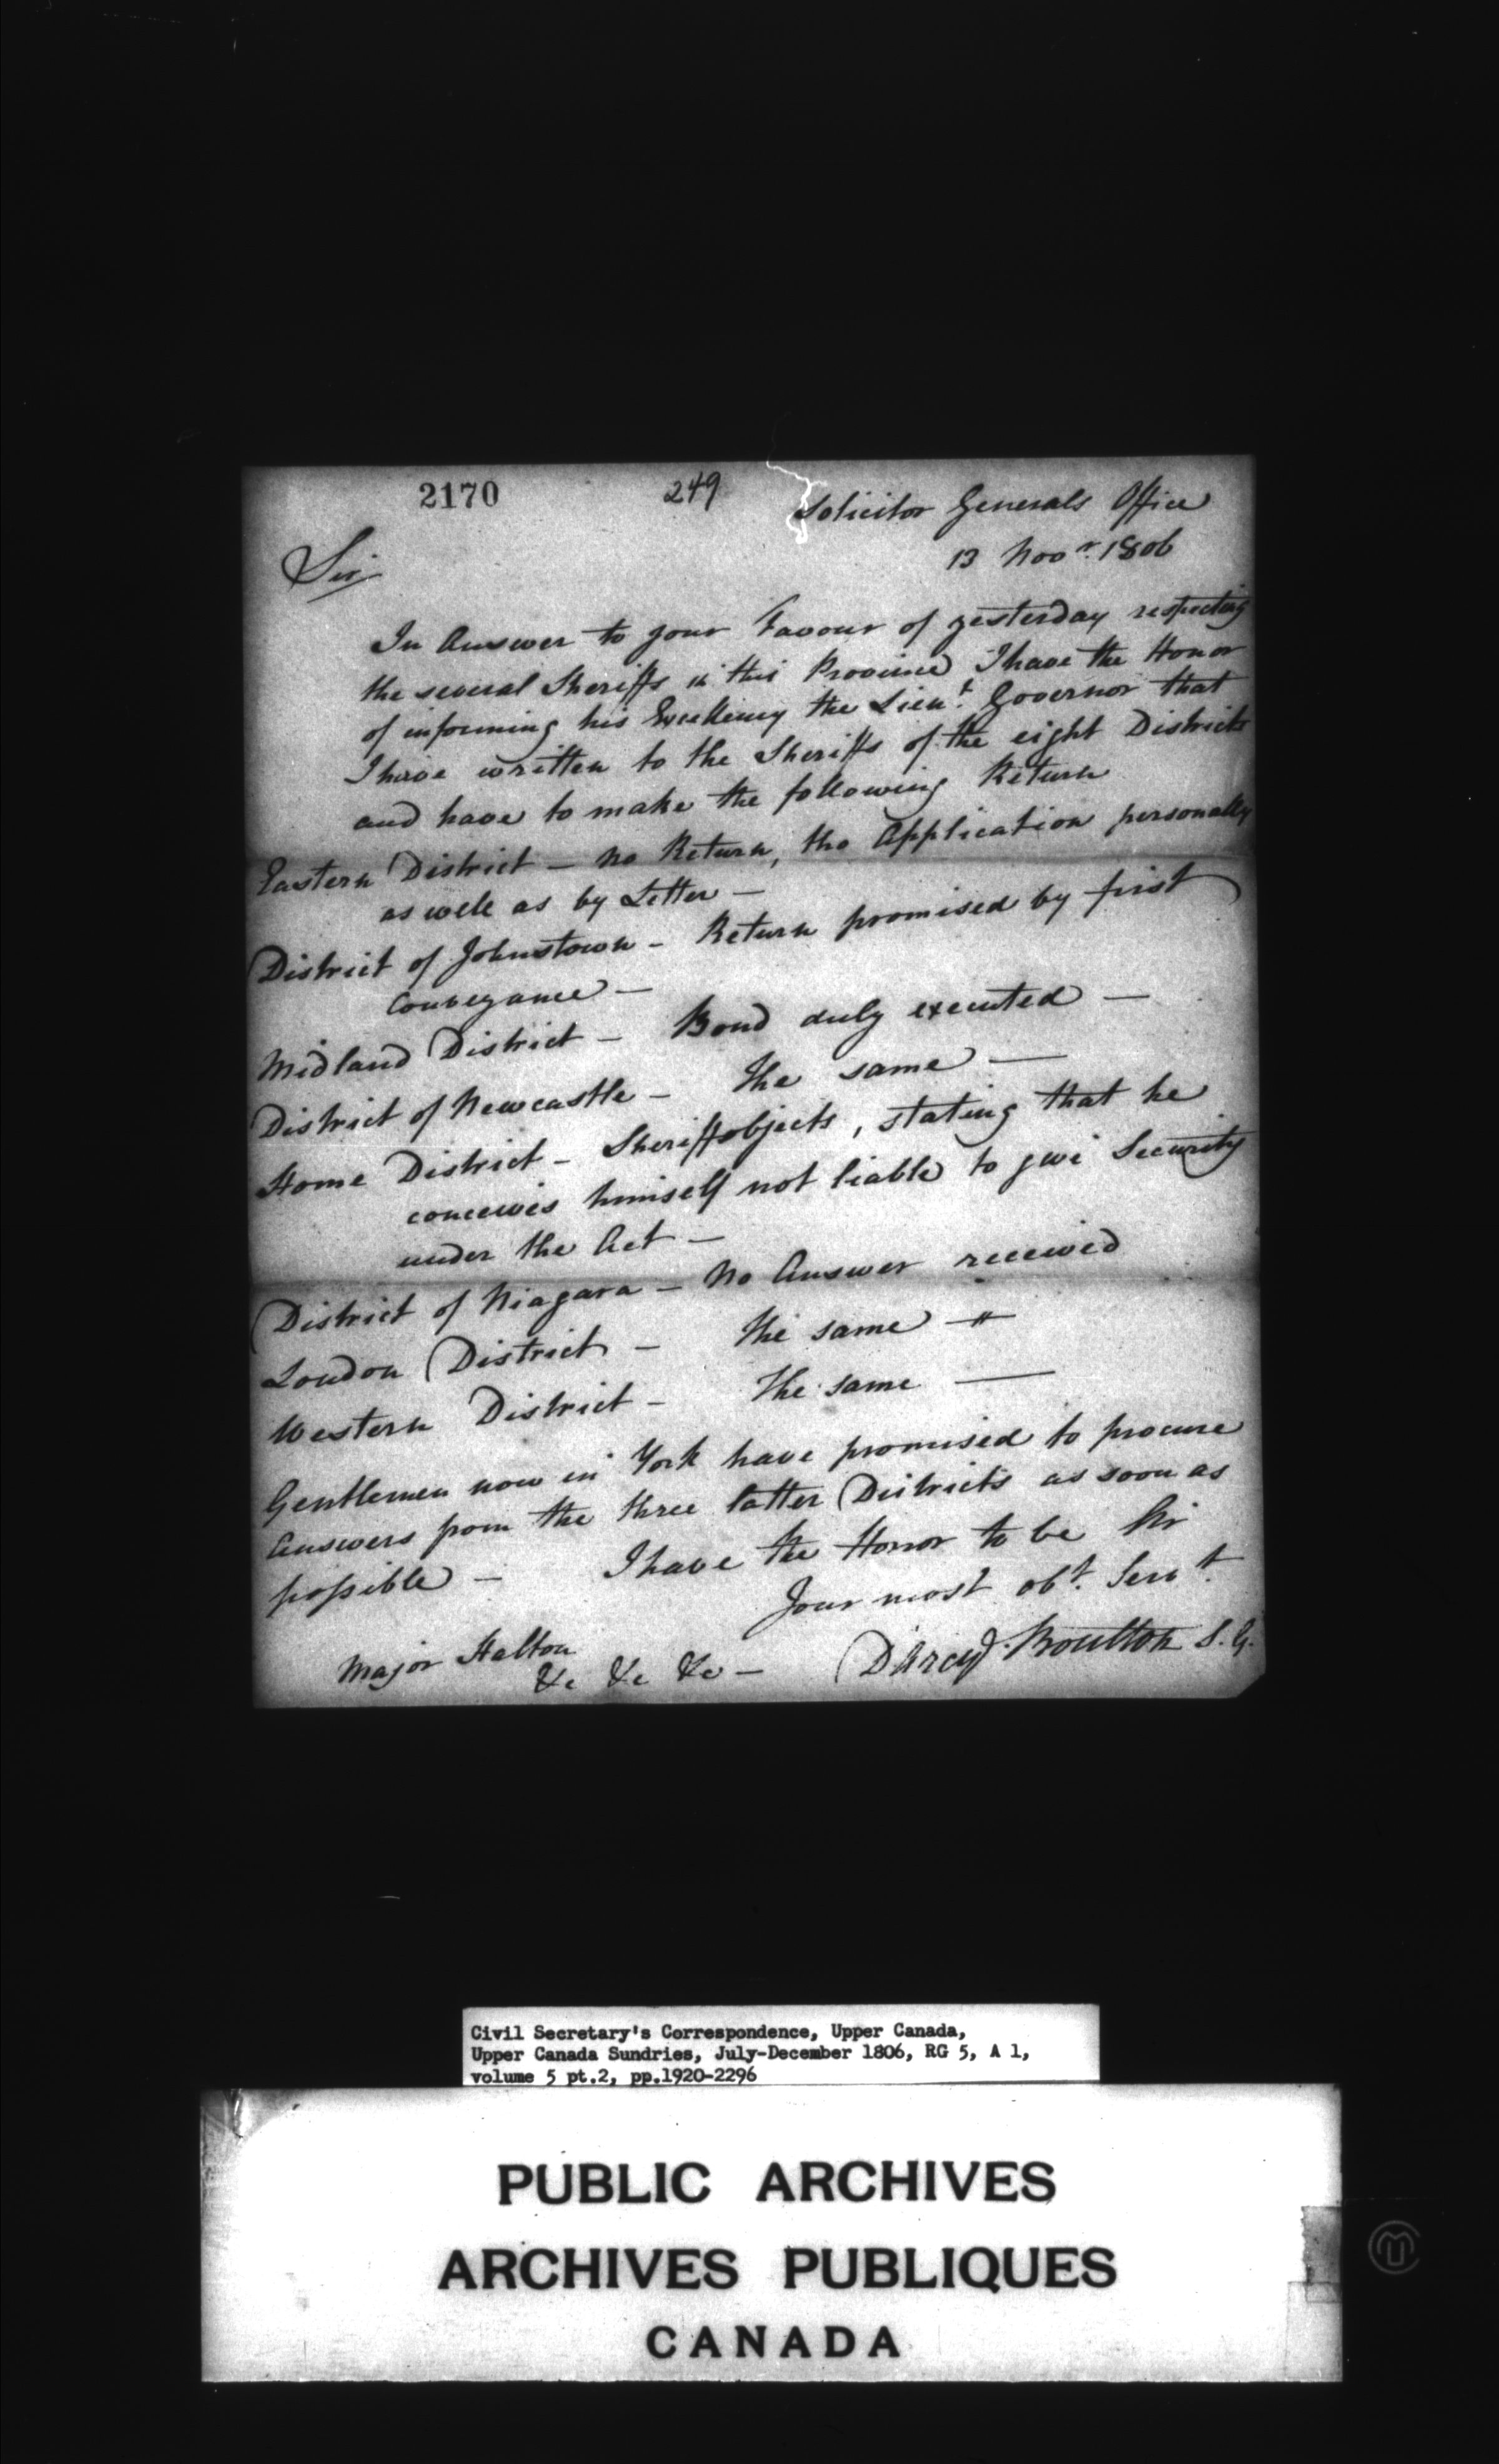 2170 249 Solicitor Generals Office
13 Novr. 1806
Sir
In Answer to your Favour of yesterday respecting
the several Sheriffs in this Province I have the Honor
of informing his Excellency the Lieut. Governor that
I have written to the Sheriffs of the eight Districts
and have to make the following Return
Eastern District — No Return, tho Application personally
as well as by Letter —
District of Johnstown — Return promised by first
Conveyance —
Midland District — Bond duly executed —
District of Newcastle — The same —
Home District — Sheriff objects, stating that he
conceives himself not liable to give Security
under the Act —
District of Niagara — No Answer received
London District — The same —
Western District — The same —
Gentlemen now in York have promised to procure
Answers from the three latter Districts as soon as
possible — I have the Honor to be Sir
Your most obt. Servt.
Major Halton
&c &c &c — D'Arcy Boulton S. G.
Civil Secretary's Correspondence, Upper Canada,
Upper Canada Sundries, July-December 1806, RG 5, A 1,
volume 5 pt.2, pp.1920-2296
PUBLIC ARCHIVES
ARCHIVES PUBLIQUES
CANADA